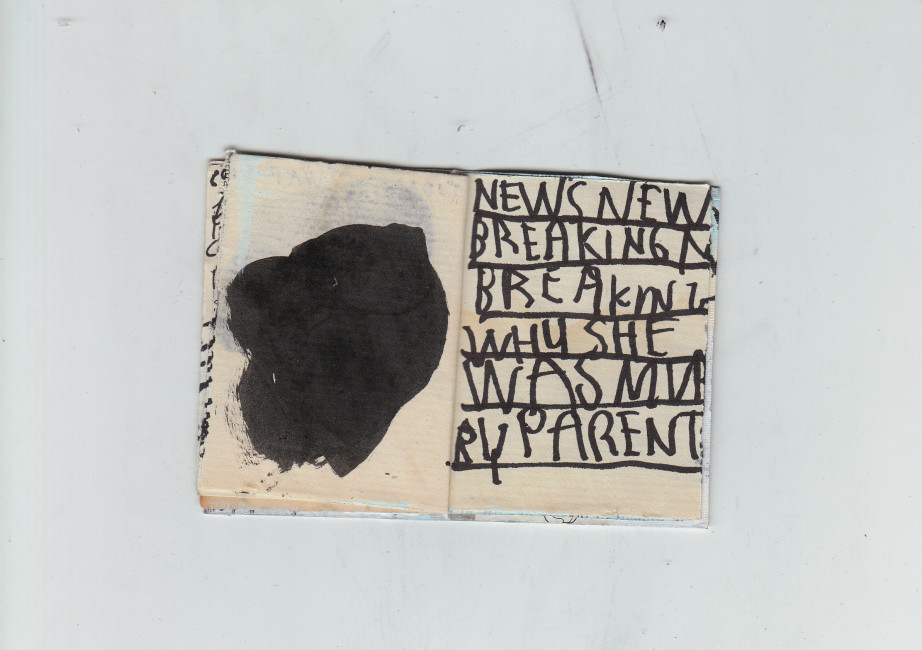 NEWS NEW
BREAKING N
BREAKIN
WHY SHE
WAS MUR
BY PARENT